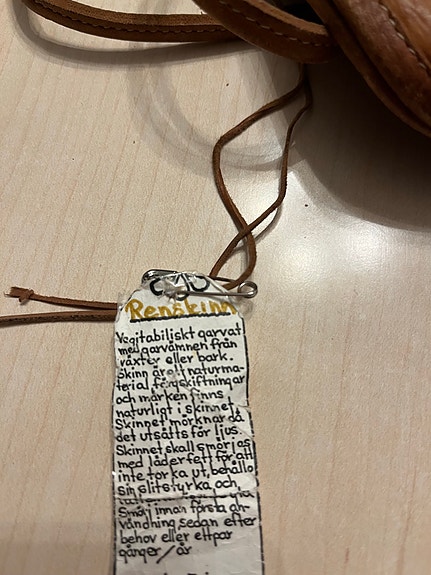 Renskinn
Vegitabiliskt garvat
med garvämnen från
växter eller bark.
Skinn är ett naturma-
terial färgskiftningar
och märken finns
naturligt i skinnet.
Skinnet mörknar då
det utsätts för ljus.
Skinnet skall smörjas
med läderfett för att
inte torka ut, behålla
sin slitstyrka och
Smörj innan första an-
vändning sedan efter
behov eller ett par
gånger/år